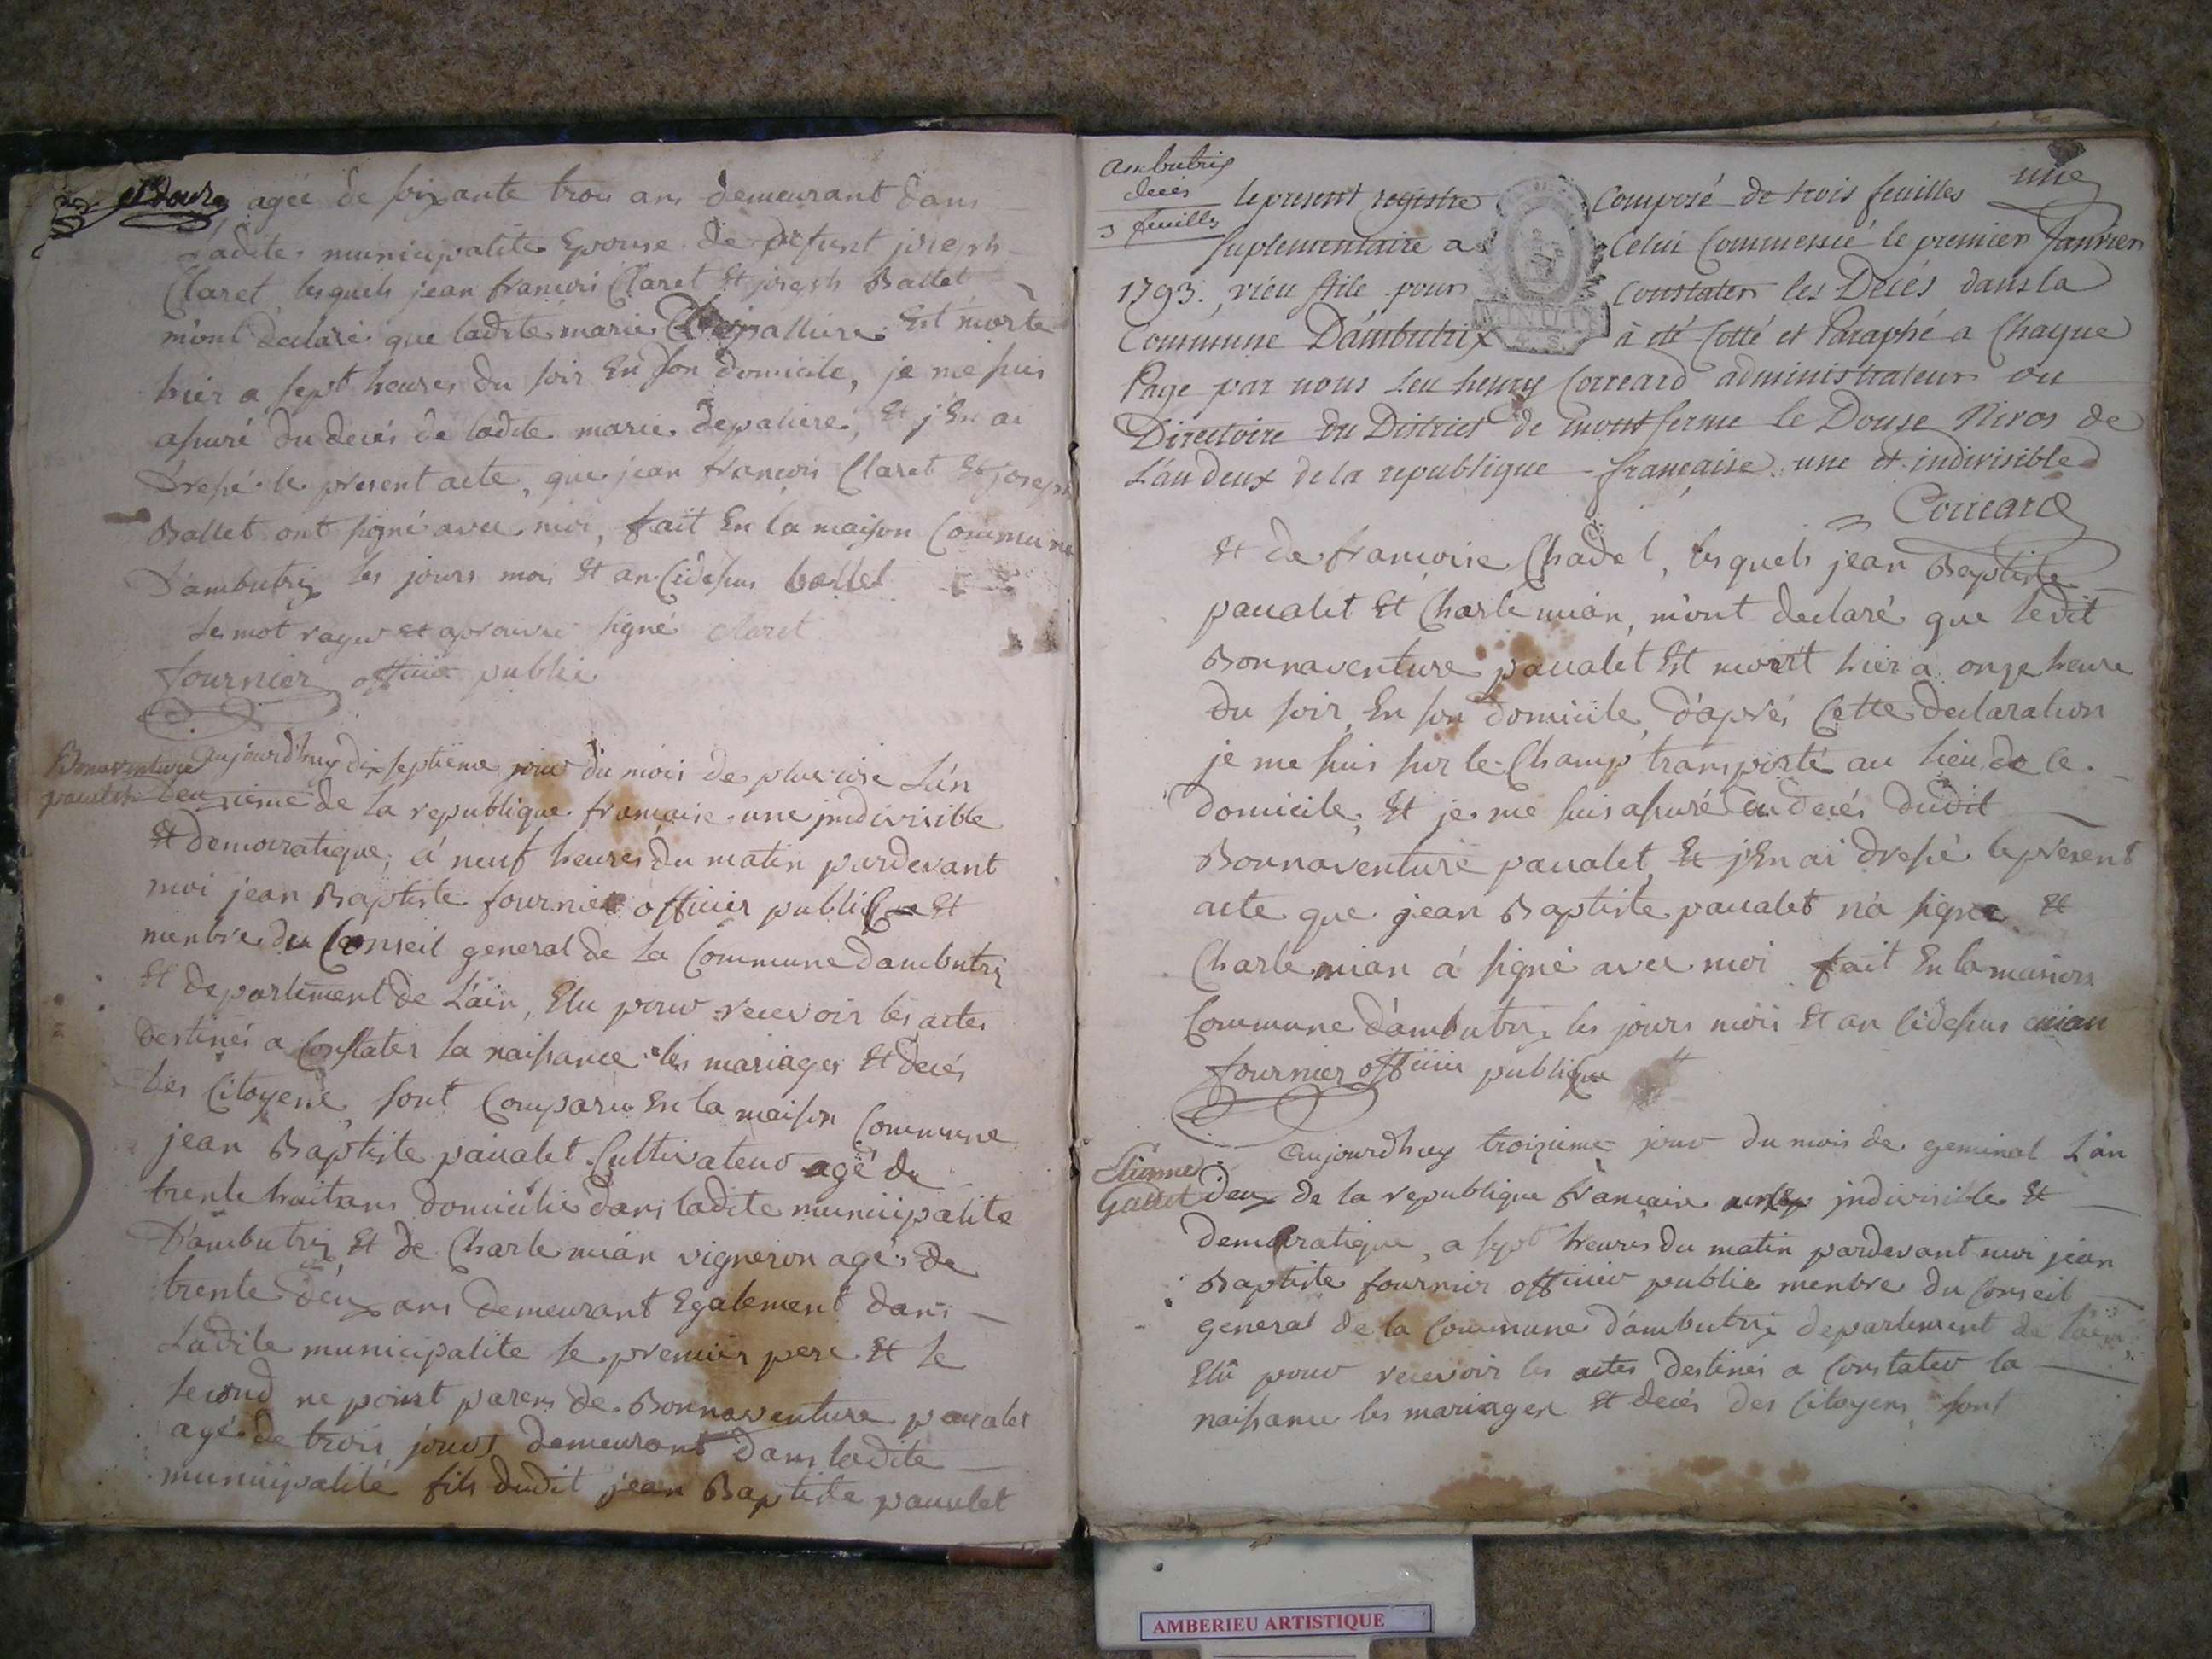 et douze
agée de soixante trois ans demeurant dans
Ladite municipalite Epouse de defunt joseph
Claret, lesquels jean francois Claret Et joseph Ballet
m'ont declaré que ladite marie Est morte
hier a sept heures du soir En son domicile, je me suis
assuré du decés de ladite marie depaliere, Et j'En ai
Dressé le present acte, que jean francois Claret Et joseph
Ballet ont signé avec moi, fait En la maison Commune
D'ambutrix les jours mois Et an Cidessus ballet
le mot rayer et aprouvé signé claret
fournier officier public
Bonaventure
paualet
aujourd'huy dixseptieme jour du mois de pluviose L'an
deuxieme de la republique francaise une jndivisible
Et democratique, á neuf heures du matin pardevant
moi jean Baptiste fournier officier public Et
menbre du Conseil general de la Commune dambutrix
Et departement de L'ain, Elu pour recevoir les actes
destinés a Constater la naissance les mariages Et decés
des Citoyens, sont Comparu En la maison Commune
jean Baptiste paualet Cultivateur agé de
trente huit ans domicilié dans ladite municipalite
D'ambutrix Et de Charle mian vigneron agé de
trente deux ans demeurant Egalement dans
Ladite municipalite le premier pere Et le
second ne point parens de Bonnaventure paualet
agé de trois jours demeurant dans ladite
municipalité fils dudit jean Baptiste paualet
ambutrix
decés
3 feuilles
une
le present registre Composé de trois feuilles
suplementaire a Celui Commencé le premier Janvier
1793. vieu stile pour Constater les Decés dans la
Commune D'ambutrix à été Cotté et Paraphé a Chaque
Page par nous Leu henry Correard administrateur du
Directoire du District de montferme le Douse Nivos de
L'an deux de la republique francaise une et indivisible
Correard
Et de francoise Chadel, lesquels jean Baptiste
paualet Et Charle mian, m'ont declaré que ledit
Bonnaventure paualet Est mort hier a onze heure
du soir, En son domicile, d'aprés Cette declaration
je me suis sur le Champ transporté au lieu de ce
domicile, Et je me suis assuré du decés dudit
Bonnaventure paualet, Et j'En ai dressé le présent
acte que jean Baptiste paualet n'a signé Et
Charle mian á signé avec moi fait En la maison
Commune d'ambutrix les jours mois Et an Cidessus mian
fournier officier public
Etienne
Gallet
aujourdhuy troizieme jour du mois de geminal L'an
deux de la republique francaise une jndivisible Et
democratique, a sept heures du matin pardevant moi jean
Baptiste fournier officier public menbre du Conseil
general de la Commune d'ambutrix departement de L'ain
Elû pour recevoir les actes destinés a Constater la
naissance les mariages Et decés des Citoyens, sont
AMBERIEU ARTISTIQUE